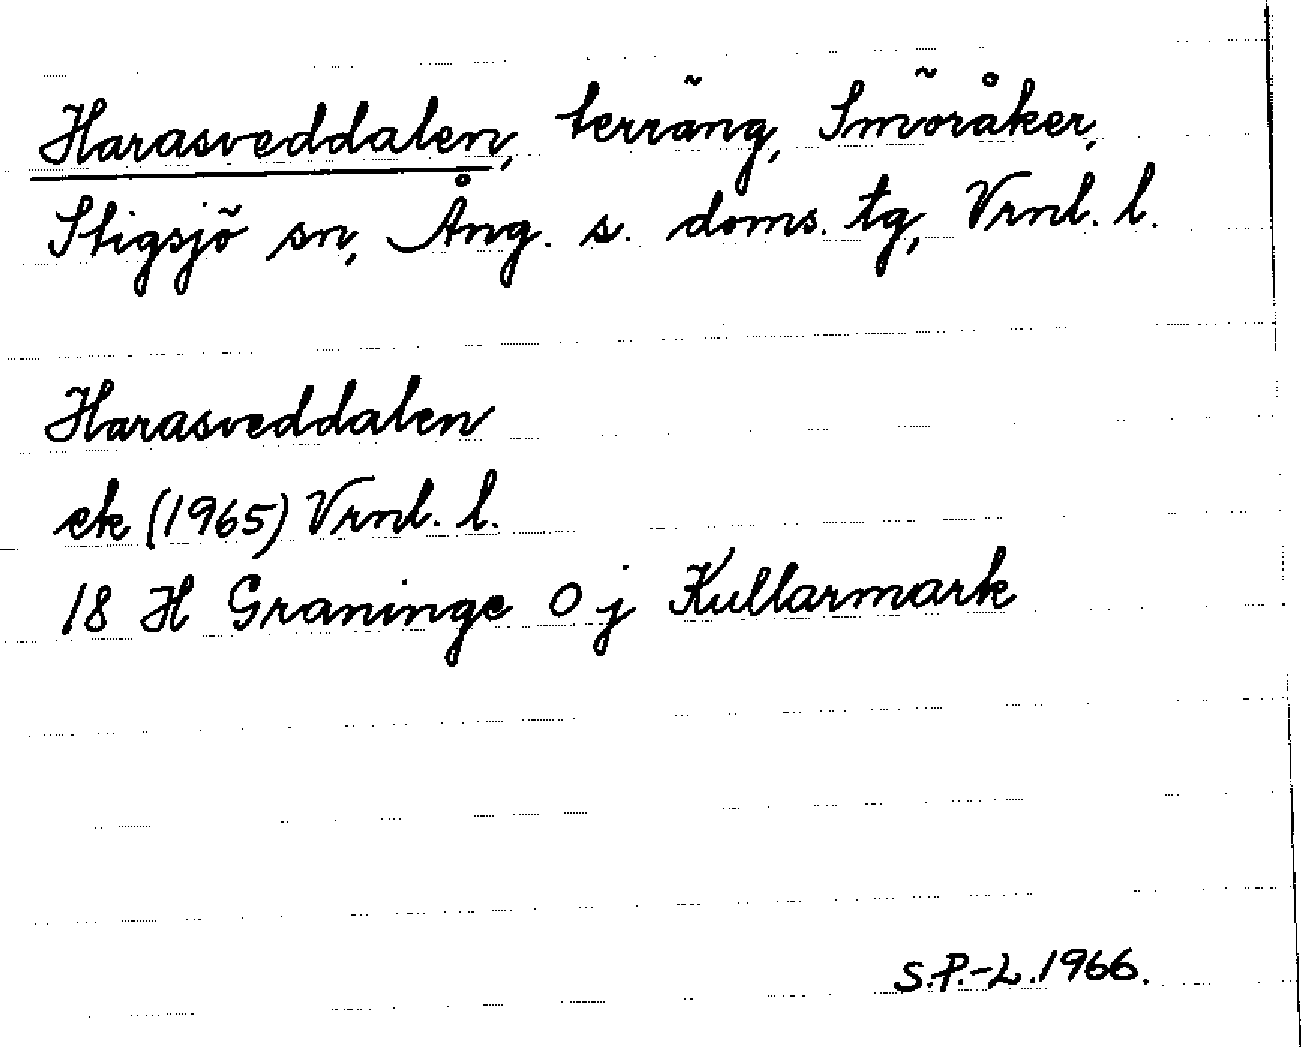 Harasveddalen, terräng, Smöråker,
Stigsjö sn, Ång. s. doms. tg, Vrnl. l.
Harasveddalen
ek (1965) Vrnl. l.
18 H Graninge O j Kullarmark
S.P.-L. 1966.